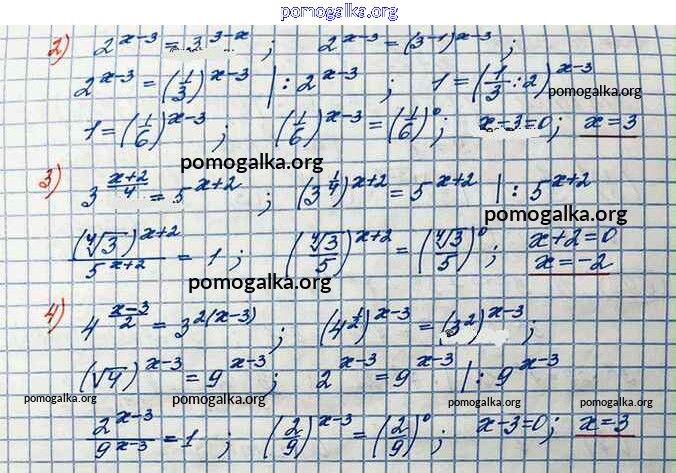 pomogalka.org
2) 2^(x-3) = 3^(3-x) ; 2^(x-3) = (3^(-1))^(x-3) ;
2^(x-3) = (1/3)^(x-3) | : 2^(x-3) ; 1 = (1/3 : 2)^(x-3)
pomogalka.org
1 = (1/6)^(x-3) ; (1/6)^(x-3) = (1/6)^0 ; x-3=0 ; x=3
pomogalka.org
3) 3^((x+2)/4) = 5^(x+2) ; (3^(1/4))^(x+2) = 5^(x+2) | : 5^(x+2)
pomogalka.org
(∜3)^(x+2)/5^(x+2) = 1 ; (∜3/5)^(x+2) = (∜3/5)^0 ; x+2=0
x=-2
pomogalka.org
4) 4^((x-3)/2) = 3^(2(x-3)) ; (4^(1/2))^(x-3) = (3^2)^(x-3) ;
(√4)^(x-3) = 9^(x-3) ; 2^(x-3) = 9^(x-3) | : 9^(x-3)
pomogalka.org pomogalka.org pomogalka.org pomogalka.org
2^(x-3)/9^(x-3) = 1 ; (2/9)^(x-3) = (2/9)^0 ; x-3=0 ; x=3